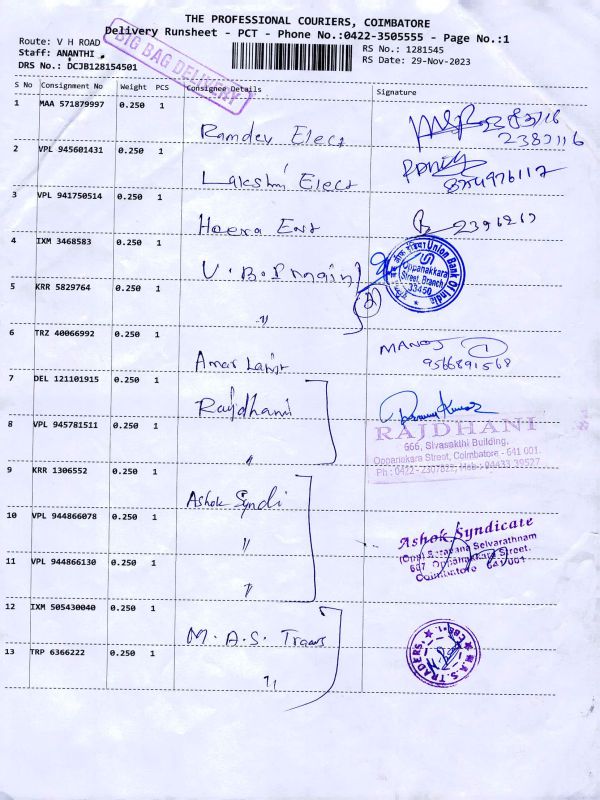 THE PROFESSIONAL COURIERS, COIMBATORE
Delivery Runsheet - PCT - Phone No.:0422-3505555 - Page No.:1
Route: V H ROAD
Staff: ANANTHI
DRS No.: DCJB128154501
BIG BAG DELIVERY
RS No.: 1281545
RS Date: 29-Nov-2023
S No Consignment No Weight PCS Consignee Details Signature
1 MAA 571879997 0.250 1 Ramdev Elect 2383116
2383116
2 VPL 945601431 0.250 1 Lakshmi Elect
3 VPL 941750514 0.250 1 Heera Ent
4 IXM 3468583 0.250 1 U.B.I main
Union Bank Of India
Oppanakkara
Street, Branch
33450
5 KRR 5829764 0.250 1 "
6 TRZ 40066992 0.250 1 Amar MANOJ 1
9566891568
7 DEL 121101915 0.250 1 Rajdhani
8 VPL 945781511 0.250 1 "
RAJDHANI
666, Sivasakthi Building,
Oppanakara Street, Coimbatore - 641 001.
Ph : 0422 - 2307825,
9 KRR 1306552 0.250 1 Ashok Syndi
10 VPL 944866078 0.250 1 "
11 VPL 944866130 0.250 1 "
Ashok Syndicate
Selvarathnam
607 Oppanakkara Street,
Coimbatore 641001
12 IXM 505430040 0.250 1 M.A.S. Traders
13 TRP 6366222 0.250 1 "
M.A.S. TRADERS
CBE-1.